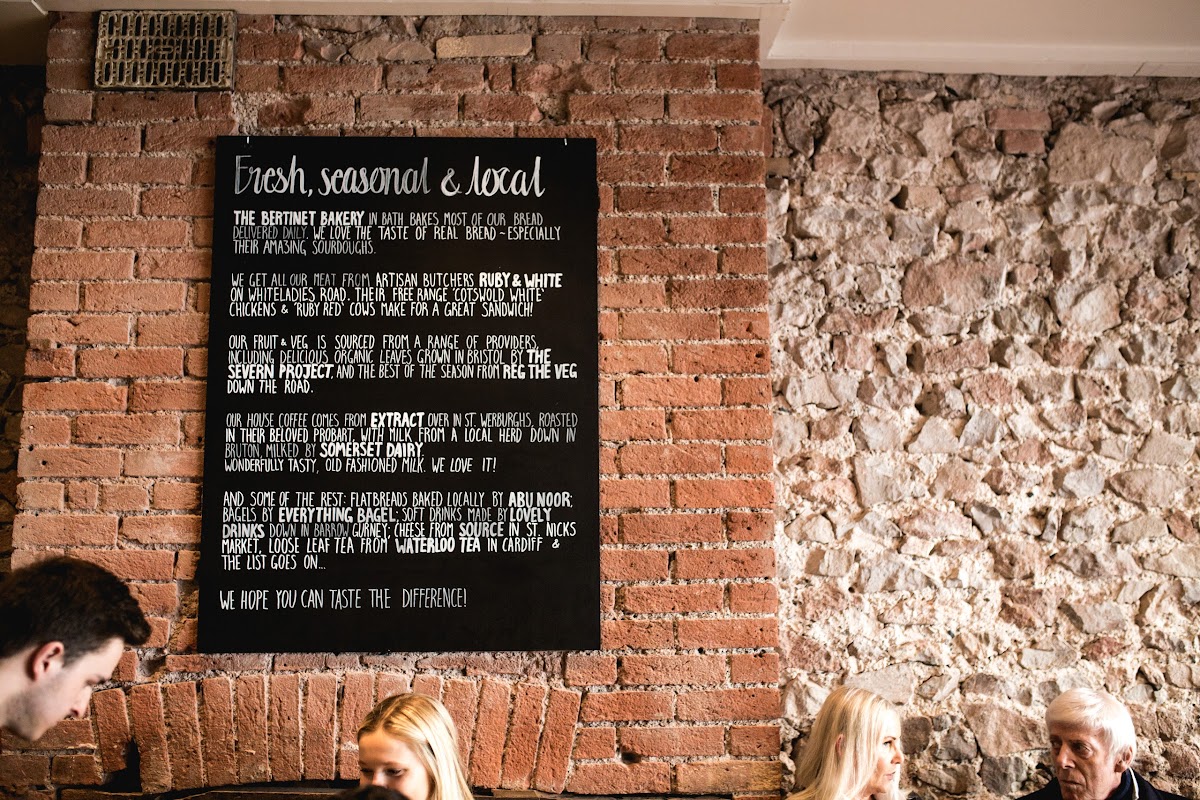 Fresh, seasonal & local
THE BERTINET BAKERY IN BATH BAKES MOST OF OUR BREAD
DELIVERED DAILY. WE LOVE THE TASTE OF REAL BREAD ~ ESPECIALLY
THEIR AMAZING SOURDOUGHS.
WE GET ALL OUR MEAT FROM ARTISAN BUTCHERS RUBY & WHITE
ON WHITELADIES ROAD. THEIR FREE RANGE 'COTSWOLD WHITE'
CHICKENS & 'RUBY RED' COWS MAKE FOR A GREAT SANDWICH!
OUR FRUIT & VEG IS SOURCED FROM A RANGE OF PROVIDERS,
INCLUDING DELICIOUS ORGANIC LEAVES GROWN IN BRISTOL BY THE
SEVERN PROJECT, AND THE BEST OF THE SEASON FROM REG THE VEG
DOWN THE ROAD.
OUR HOUSE COFFEE COMES FROM EXTRACT OVER IN ST. WERBURGHS, ROASTED
IN THEIR BELOVED PROBART, WITH MILK FROM A LOCAL HERD DOWN IN
BRUTON, MILKED BY SOMERSET DAIRY.
WONDERFULLY TASTY, OLD FASHIONED MILK. WE LOVE IT!
AND SOME OF THE REST: FLATBREADS BAKED LOCALLY BY ABU NOOR;
BAGELS BY EVERYTHING BAGEL; SOFT DRINKS MADE BY LOVELY
DRINKS DOWN IN BARROW GURNEY; CHEESE FROM SOURCE IN ST. NICKS
MARKET, LOOSE LEAF TEA FROM WATERLOO TEA IN CARDIFF &
THE LIST GOES ON...
WE HOPE YOU CAN TASTE THE DIFFERENCE!